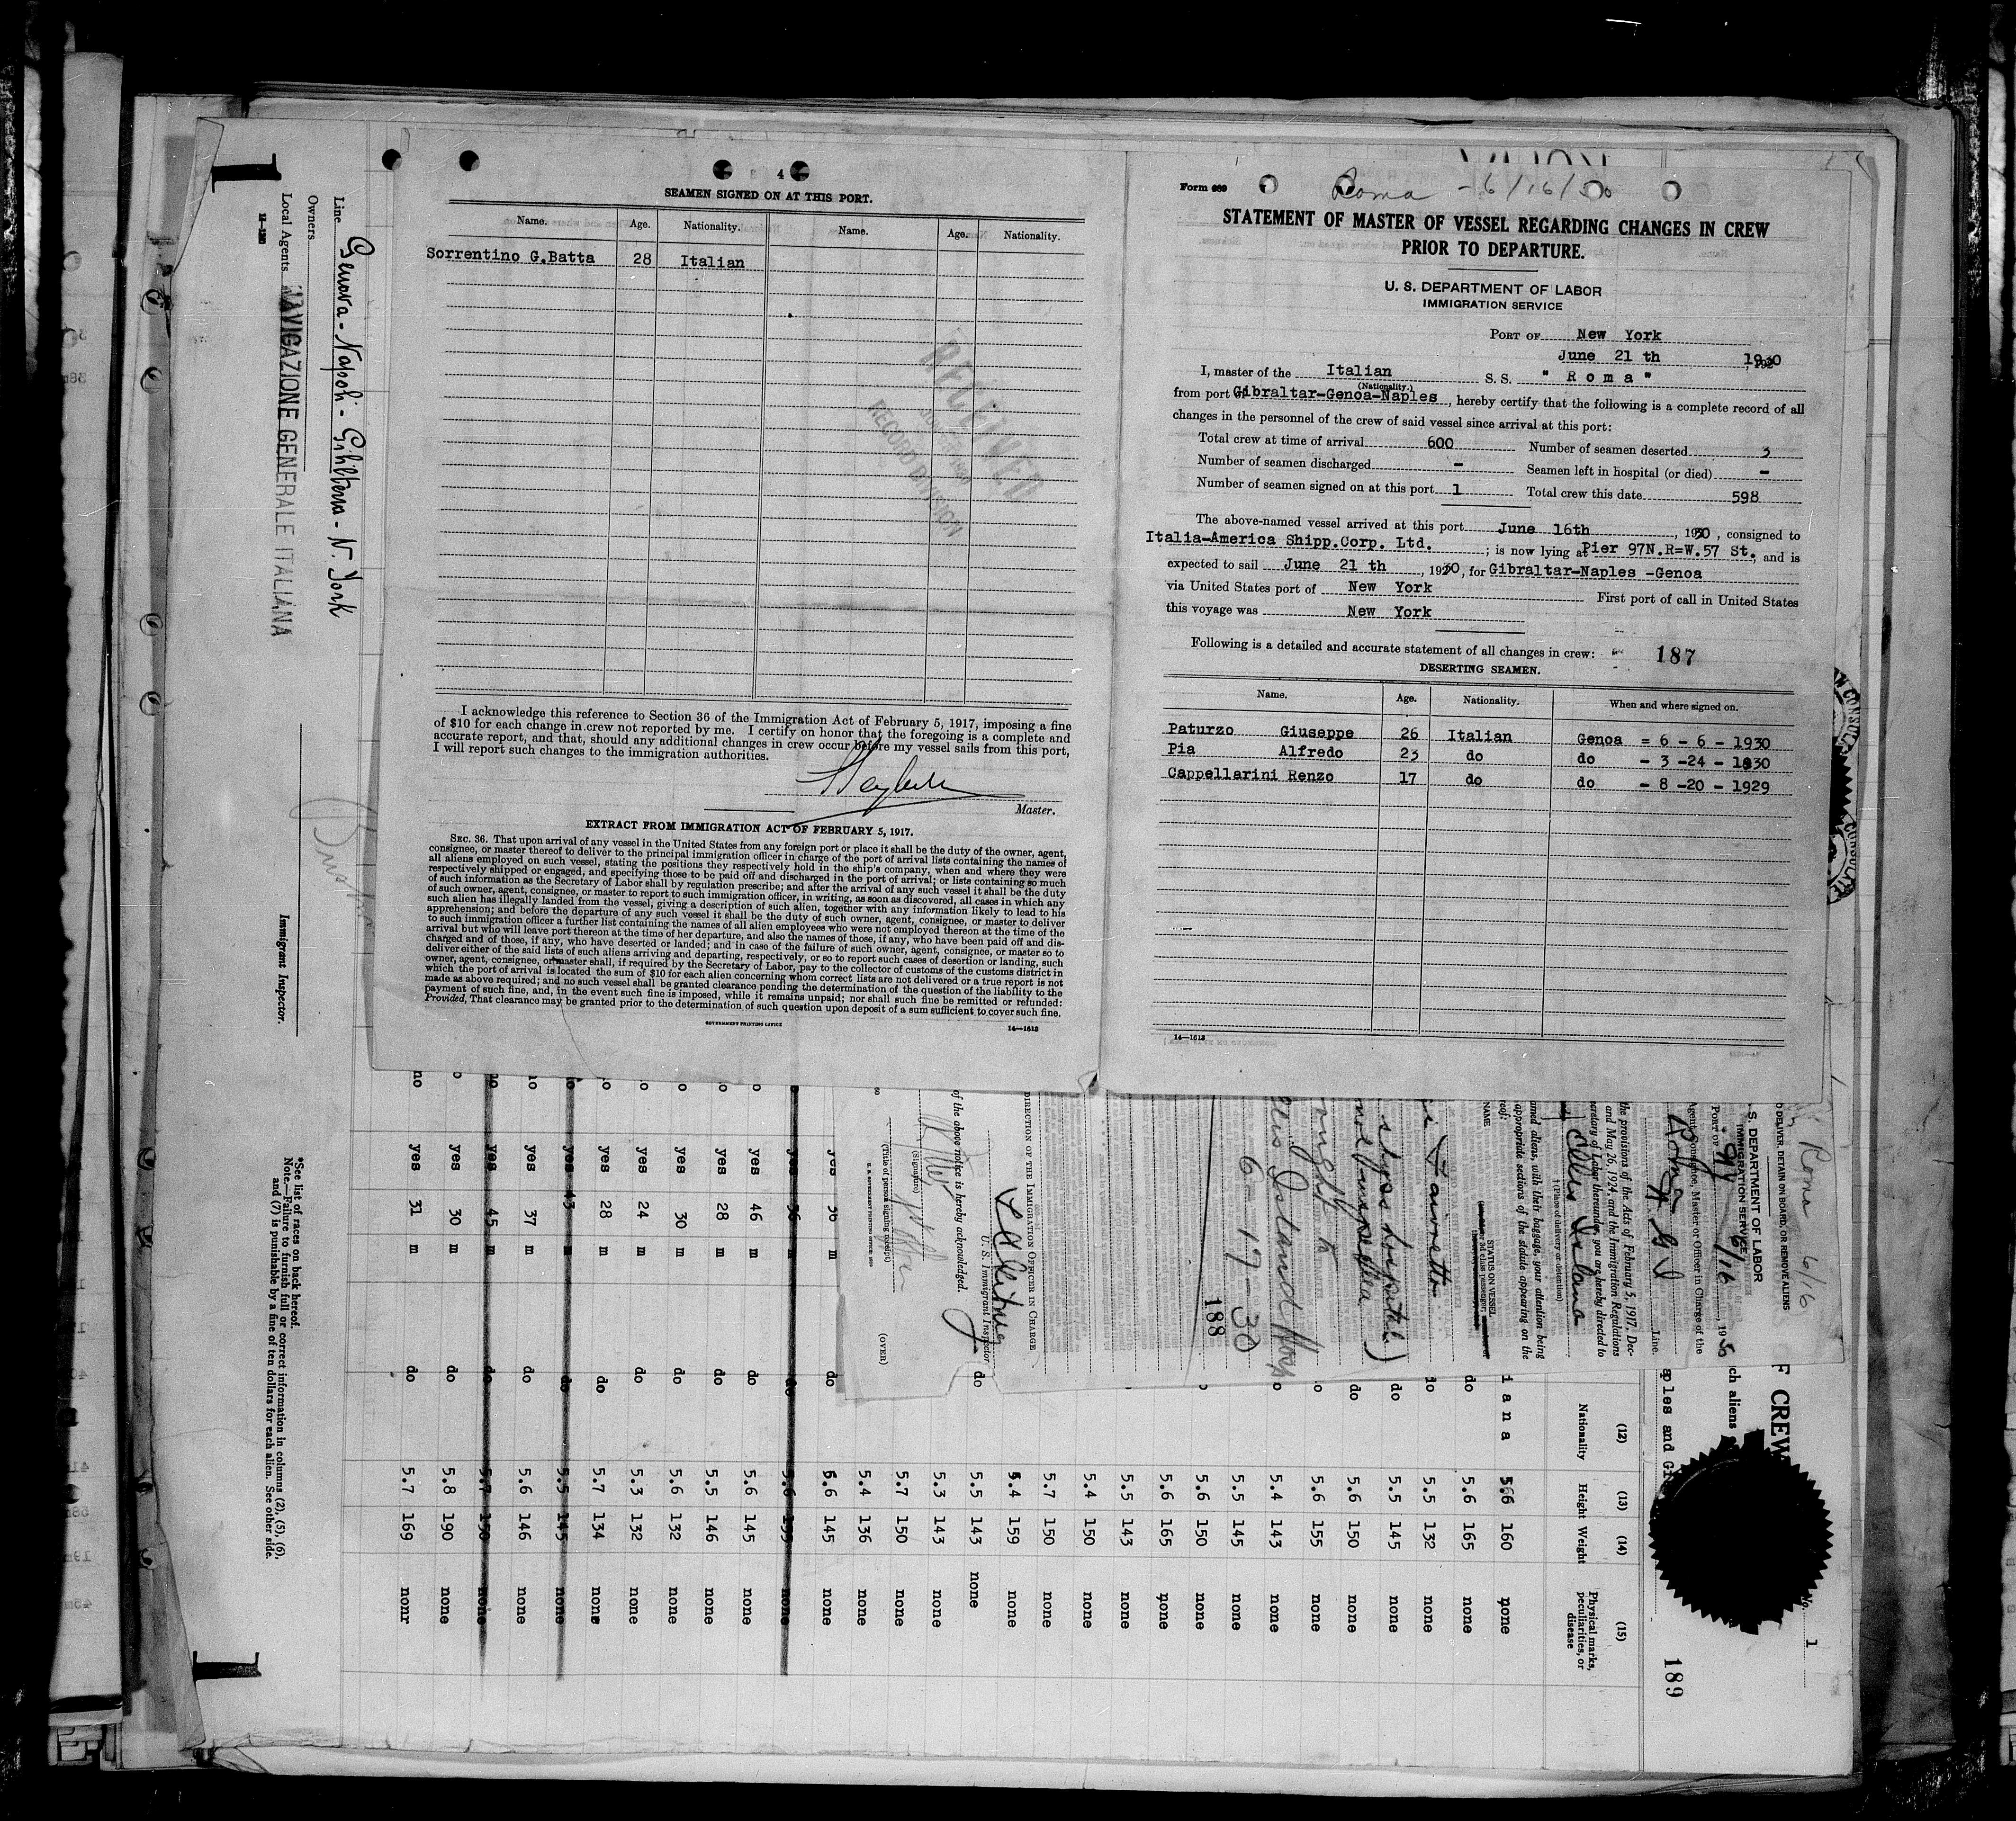 4
SEAMEN SIGNED ON AT THIS PORT.
Name. Age. Nationality. Name. Age. Nationality.
Sorrentino G.Batta 28 Italian
RECEIVED
RECORD DIVISION
I acknowledge this reference to Section 36 of the Immigration Act of February 5, 1917, imposing a fine
of $10 for each change in crew not reported by me. I certify on honor that the foregoing is a complete and
accurate report, and that, should any additional changes in crew occur before my vessel sails from this port,
I will report such changes to the immigration authorities.
Master.
EXTRACT FROM IMMIGRATION ACT OF FEBRUARY 5, 1917.
SEC. 36. That upon arrival of any vessel in the United States from any foreign port or place it shall be the duty of the owner, agent,
consignee, or master thereof to deliver to the principal immigration officer in charge of the port of arrival lists containing the names of
all aliens employed on such vessel, stating the positions they respectively hold in the ship's company, when and where they were
respectively shipped or engaged, and specifying those to be paid off and discharged in the port of arrival; or lists containing so much
of such information as the Secretary of Labor shall by regulation prescribe; and after the arrival of any such vessel it shall be the duty
of such owner, agent, consignee, or master to report to such immigration officer, in writing, as soon as discovered, all cases in which any
such alien has illegally landed from the vessel, giving a description of such alien, together with any information likely to lead to his
apprehension; and before the departure of any such vessel it shall be the duty of such owner, agent, consignee, or master to deliver
to such immigration officer a further list containing the names of all alien employees who were not employed thereon at the time of the
arrival but who will leave port thereon at the time of her departure, and also the names of those, if any, who have been paid off and dis-
charged and of those, if any, who have deserted or landed; and in case of the failure of such owner, agent, consignee, or master so to
deliver either of the said lists of such aliens arriving and departing, respectively, or so to report such cases of desertion or landing, such
owner, agent, consignee, or master shall, if required by the Secretary of Labor, pay to the collector of customs of the customs district in
which the port of arrival is located the sum of $10 for each alien concerning whom correct lists are not delivered or a true report is not
made as above required; and no such vessel shall be granted clearance pending the determination of the question of the liability to the
payment of such fine, and, in the event such fine is imposed, while it remains unpaid; nor shall such fine be remitted or refunded:
Provided, That clearance may be granted prior to the determination of such question upon deposit of a sum sufficient to cover such fine.
GOVERNMENT PRINTING OFFICE
14—1613
Form 689
Roma - 6/16/30
STATEMENT OF MASTER OF VESSEL REGARDING CHANGES IN CREW
PRIOR TO DEPARTURE.
U. S. DEPARTMENT OF LABOR
IMMIGRATION SERVICE
PORT OF New York
June 21 th 1930
I, master of the Italian S. S. " R o m a "
(Nationality.)
from port of Gibraltar-Genoa-Naples, hereby certify that the following is a complete record of all
changes in the personnel of the crew of said vessel since arrival at this port:
Total crew at time of arrival 600 Number of seamen deserted 3
Number of seamen discharged - Seamen left in hospital (or died) -
Number of seamen signed on at this port 1 Total crew this date 598
The above-named vessel arrived at this port June 16th, 1930, consigned to
Italia-America Shipp.Corp. Ltd. ; is now lying at Pier 97N.R=W.57 St., and is
expected to sail June 21 th, 1930, for Gibraltar-Naples -Genoa
via United States port of New York First port of call in United States
this voyage was New York
Following is a detailed and accurate statement of all changes in crew: 187
DESERTING SEAMEN.
Name. Age. Nationality. When and where signed on.
Paturzo Giuseppe 26 Italian Genoa = 6 - 6 - 1930
Pia Alfredo 23 do do - 3 -24 - 1930
Cappellarini Renzo 17 do do - 8 -20 - 1929
14—1613
Line Genova - Napoli - Gibilterra - N. York
Owners
Local Agents NAVIGAZIONE GENERALE ITALIANA
Immigrant Inspector.
*See list of races on back hereof.
Note.—Failure to furnish full or correct information in columns (2), (5), (6),
and (7) is punishable by a fine of ten dollars for each alien. See other side.
Roma 6/16
O DELIVER, DETAIN ON BOARD, OR REMOVE ALIENS
S. DEPARTMENT OF LABOR
IMMIGRATION SERVICE
PORT OF NY 6/16, 1930
Agent, Consignee, Master or Officer in Charge of the
Roma N G I Line.
the provisions of the Acts of February 5, 1917, Dec-
and May 26, 1924, and the Immigration Regulations
cretary of Labor thereunder, you are hereby directed to
Ellis Island
(Place of delivery or detention)
amed aliens, with their baggage, your attention being
appropriate sections of the statute appearing on the
reof:
NAME STATUS ON VESSEL
ships hospital)
Ellis Island Hosp
6-17-30
188
DIRECTION OF THE IMMIGRATION OFFICER IN CHARGE
U. S. Immigrant Inspector
of the above notice is hereby acknowledged.
(Signature)
(Title of person signing receipt)
(OVER)
F CREW
No. 1
ch aliens
ples and Gi
189
(12) (13) (14) (15)
Nationality Height Weight Physical marks, peculiarities, or disease
i a n a 5.6 160 none
do 5.6 165 none
do 5.5 132 none
do 5.5 145 none
do 5.6 150 none
5.6 155 none
5.4 143 none
5.5 145 none
5.6 150 none
5.6 165 none
5.5 143 none
5.4 150 none
5.7 150 none
5.4 159 none
do 5.5 143 none
5.3 143 none
5.7 150 none
5.4 136 none
yes 36 m do 5.6 145 none
yes 46 m 5.6 145 none
yes 28 m do 5.5 146 none
yes 30 m do 5.6 132 none
yes 24 m do 5.3 132 none
yes 28 m do 5.7 134 none
yes 43 m do 5.5 145 none
yes 37 m do 5.6 146 none
yes 45 m do 5.7 150 none
yes 30 m do 5.8 190 none
no yes 31 m do 5.7 169 nonr